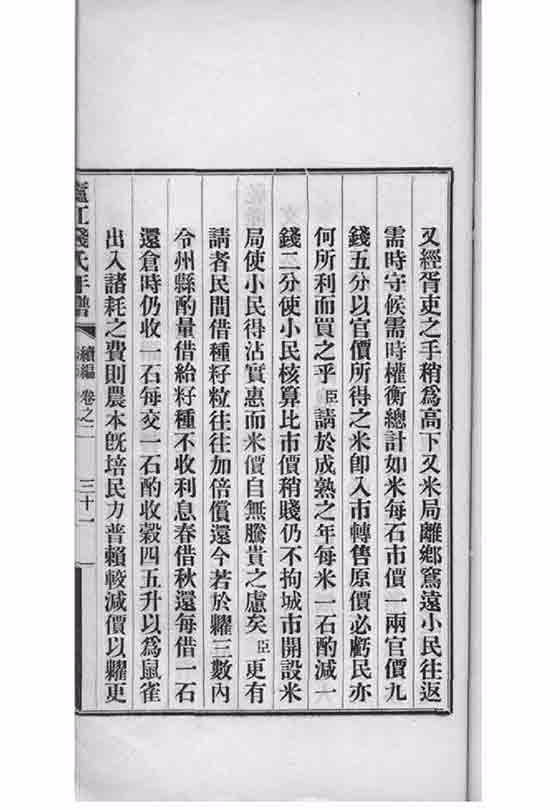 又經胥吏之手稍爲高下又米局離鄉窵遠小民往返
需時守候需時權衡總計如米每石市價一兩官價九
錢五分以官價所得之米卽入市轉售原價必虧民亦
何所利而買之乎臣請於成熟之年每米一石酌減一
錢二分使小民核算比市價稍賤仍不拘城市開設米
局使小民得沾實惠而米價自無騰貴之慮矣臣更有
請者民間借種籽粒往往加倍償還今若於糶三數內
令州縣酌量借給籽種不收利息春借秋還每借一石
還倉時仍收一石每交一石酌收穀四五升以爲鼠雀
出入諸耗之費則農本旣培民力普賴較減價以糶更
廬江錢氏年譜 續編 卷之二 三十一